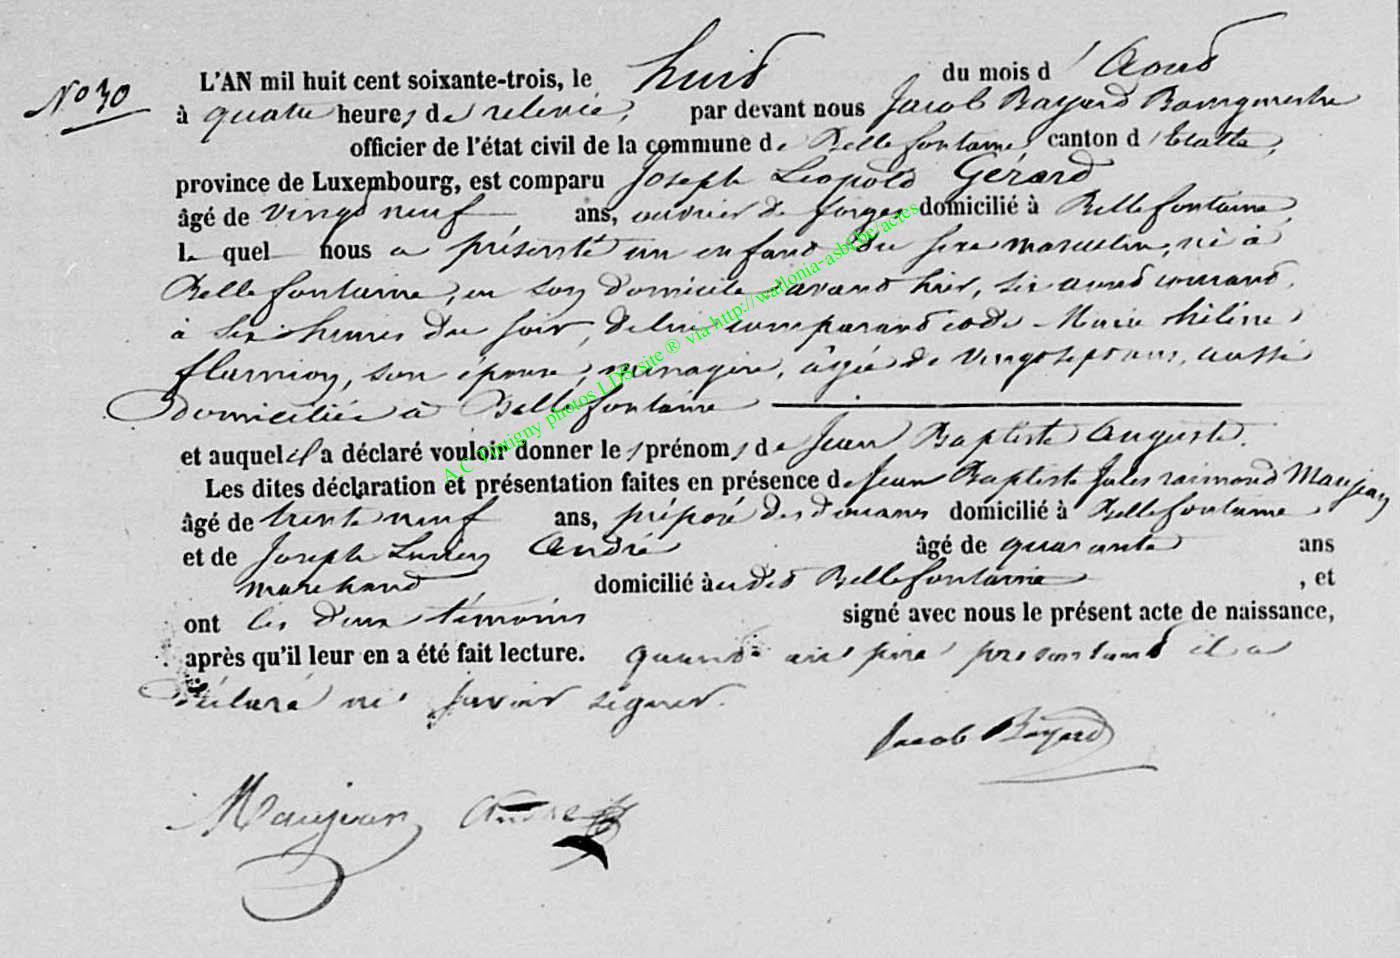 No 30
L'AN mil huit cent soixante-trois, le huid du mois d'Aoud
à quatre heures de relevée, par devant nous Jacob Bayard Bourgmestre
officier de l'état civil de la commune de Bellefontaine canton d'Etalle,
province de Luxembourg, est comparu Joseph Léopold Gérard
âgé de vingd neuf ans, ouvrier de forges domicilié à Bellefontaine,
le quel nous a présenté un enfand du sexe masculin, né à
Bellefontaine, en son domicile avand hier, six aoud courand,
à six heures du soir, de lui comparand et de Marie hélène
flamion, son épouse, ménagère, âgée de vingd sept ans, aussi
domiciliée à Bellefontaine
et auquel il a déclaré vouloir donner les prénoms de Jean Baptiste Auguste.
Les dites déclaration et présentation faites en présence de Jean Baptiste Jules raimond Maujean
âgé de trente neuf ans, préposé des douanes domicilié à Bellefontaine
et de Joseph Lucien André âgé de quarante ans
marchand domicilié à udid Bellefontaine, et
ont les deux témoins signé avec nous le présent acte de naissance,
après qu'il leur en a été fait lecture. quand au père présentand il a
déclaré ne savoir signer.
Jacob Bayard
Maujean André
A.C. Tintigny photos LDS site ® via http://wallonia-asbl.be/actes